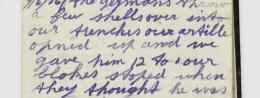 of the germans throw
a few shells over into
our trenches our artille
opned up and we
gave him 12 to 1 our
blokes stoped when
they thought he was